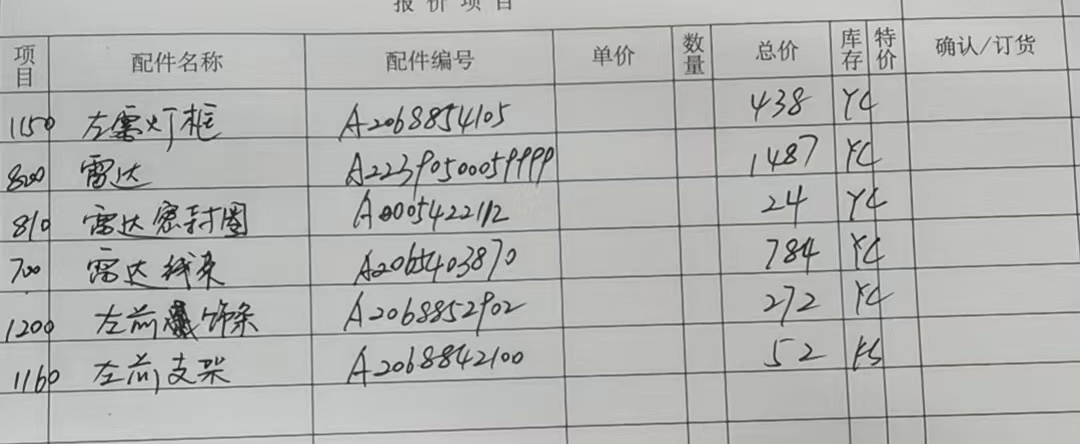 报价项目
项目 配件名称 配件编号 单价 数量 总价 库存 特价 确认/订货
1150 左雾灯框 A2068854105 438 YC
800 雷达 A22390500059999 1487 YC
810 雷达密封圈 A0005422112 24 YC
700 雷达线束 A2065403870 784 YC
1200 左前饰条 A2068852902 272 YC
1160 左前支架 A2068842100 52 KS